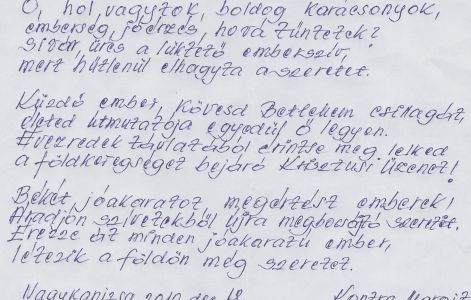 Ó, hol vagytok, boldog karácsonyok,
emberség, jóérzés, hová tűntetek?
Sivár, üres a lüktető emberszív,
mert hűtlenül elhagyta a szeretet.
Küzdő ember, kövesd Betlehem csillagát,
életed útmutatója egyedül ő legyen.
Évezredek távlatából érintse meg lelked
a földkerekséget bejáró Krisztusi üzenet!
Békét, jóakaratot, megértést emberek!
Áradjon szívetekből újra megbocsátó szeretet.
Érezze át minden jóakaratú ember,
létezik a földön még szeretet.
Nagykanizsa, 2010. dec. 18. Kontra Margit